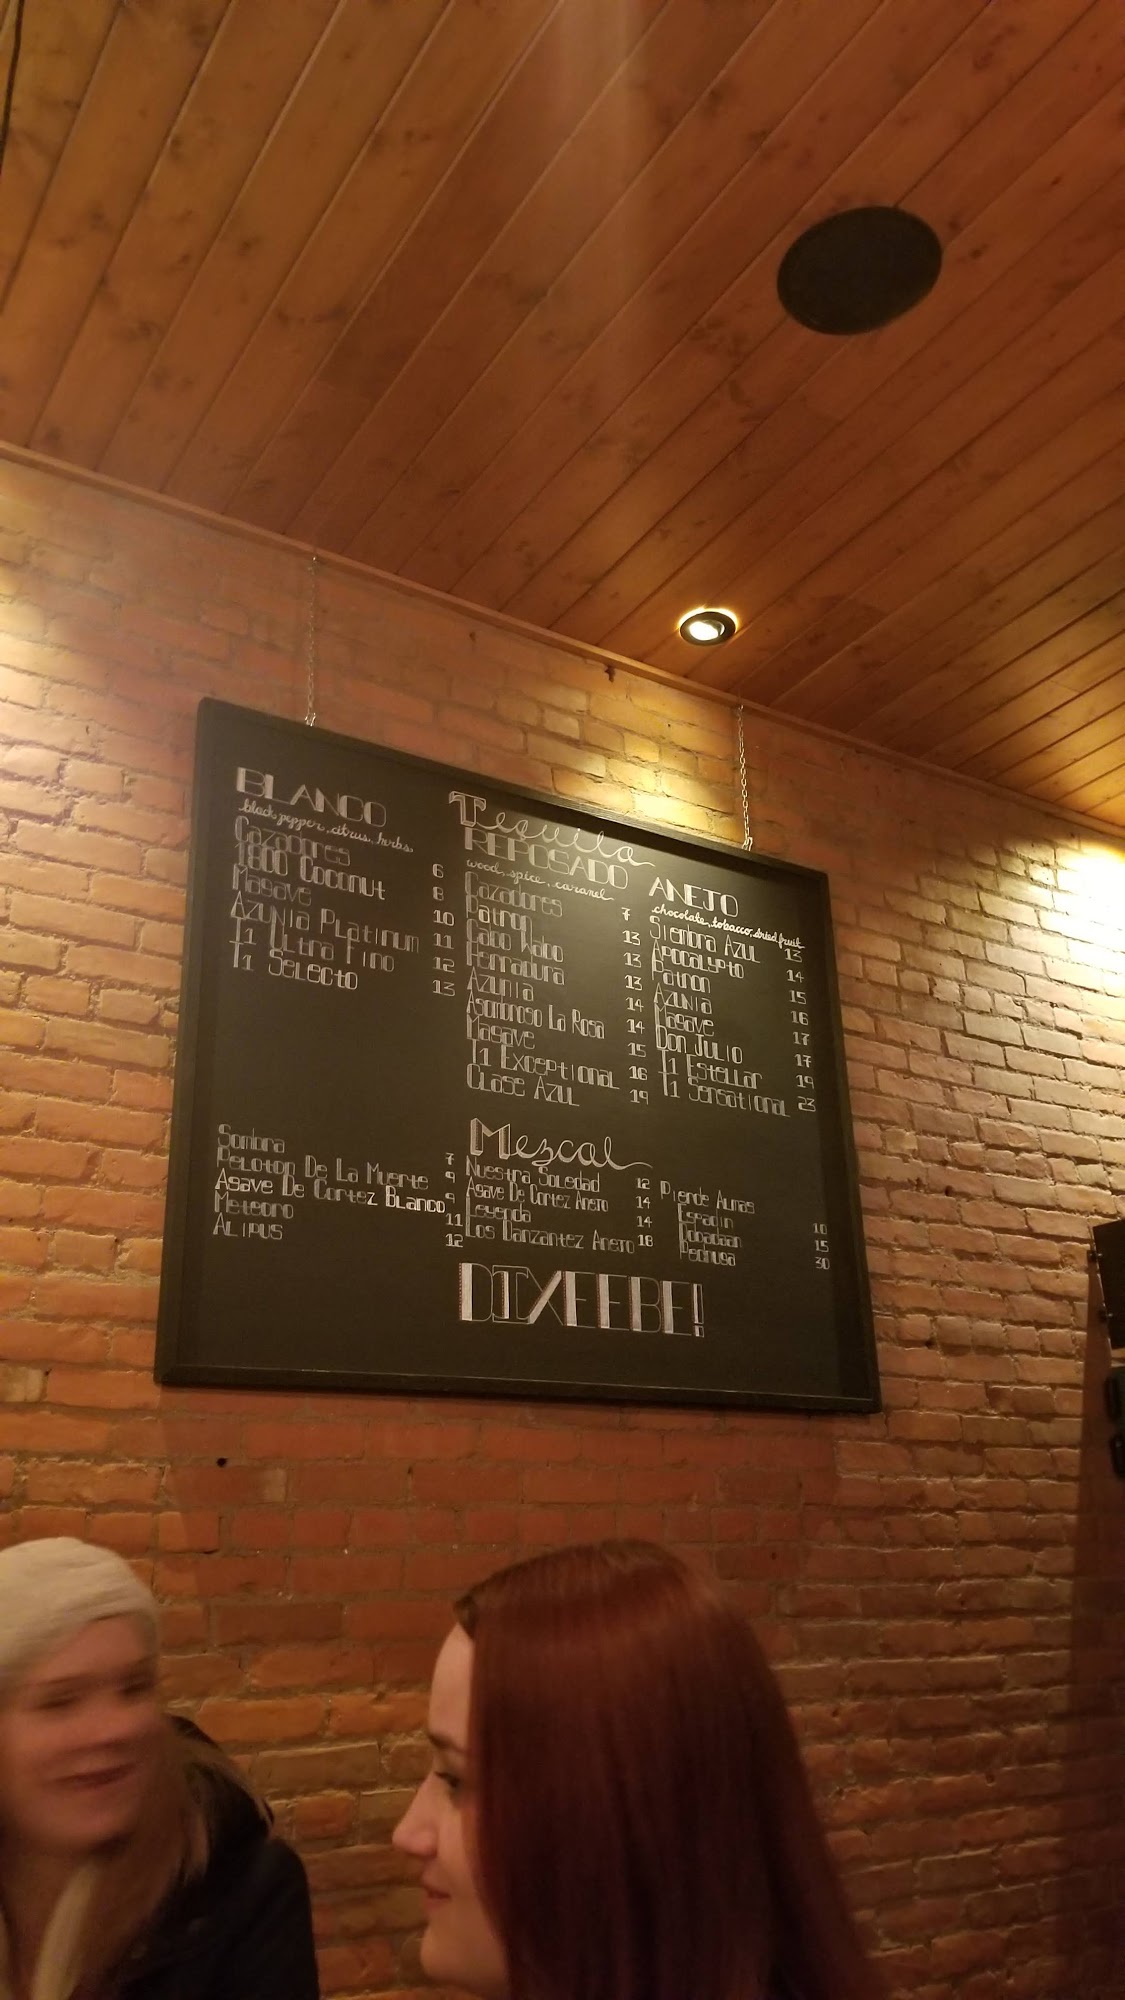 Tequila
BLANCO
black pepper, citrus, herbs
Cazadores 6
1800 Coconut 8
Masave 10
Azunia Platinum 11
T1 Ultra Fino 12
T1 Selecto 13
REPOSADO
wood, spice, caramel
Cazadores 7
Patron 13
Cabo Wabo 13
Herradura 13
Azunia 14
Asombroso La Rosa 14
Masave 15
T1 Exceptional 16
Clase Azul 19
ANEJO
chocolate, tobacco, dried fruit
Siembra Azul 13
Apocalypto 14
Patron 15
Azunia 16
Masave 17
Don Julio 17
T1 Estellar 19
T1 Sensational 23
Mezcal
Sombra 7
Peloton De La Muerte 9
Agave De Cortez Blanco 9
Meteoro 11
Alipus 12
Nuestra Soledad 12
Agave De Cortez Anero 14
Leyenda 14
Los Danzantez Anero 18
Pierde Almas
Espadin 10
Dobadaan 15
Pechuga 30
DIXEEBE!